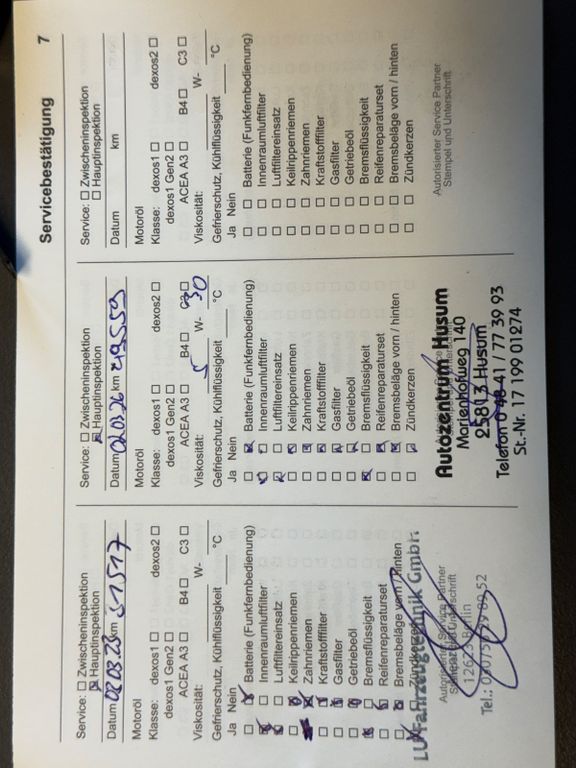 Servicebestätigung 7
Service: Zwischeninspektion
Hauptinspektion
Datum 02.03.23 km
Motoröl
Klasse: dexos1 dexos2
dexos1 Gen2
ACEA A3 B4 C3
Viskosität: W-
Gefrierschutz, Kühlflüssigkeit °C
Ja Nein
Batterie (Funkfernbedienung)
Innenraumluftfilter
Luftfiltereinsatz
Keilrippenriemen
Zahnriemen
Kraftstofffilter
Gasfilter
Getriebeöl
Bremsflüssigkeit
Reifenreparaturset
Bremsbeläge vorn / hinten
Zündkerzen
Fahrzeugtechnik GmbH
Autorisierter Service Partner
Stempel und Unterschrift
12623 Berlin
Service: Zwischeninspektion
Hauptinspektion
Datum 02.03.26 km 49559
Motoröl
Klasse: dexos1 dexos2
dexos1 Gen2
ACEA A3 B4 C3
Viskosität: 5 W- 30
Gefrierschutz, Kühlflüssigkeit °C
Ja Nein
Batterie (Funkfernbedienung)
Innenraumluftfilter
Luftfiltereinsatz
Keilrippenriemen
Zahnriemen
Kraftstofffilter
Gasfilter
Getriebeöl
Bremsflüssigkeit
Reifenreparaturset
Bremsbeläge vorn / hinten
Zündkerzen
Autozentrum Husum
Marienhofweg 140
25813 Husum
Telefon 0 48 41 / 77 39 93
St.-Nr. 17 199 01274
Service: Zwischeninspektion
Hauptinspektion
Datum km
Motoröl
Klasse: dexos1 dexos2
dexos1 Gen2
ACEA A3 B4 C3
Viskosität: W-
Gefrierschutz, Kühlflüssigkeit °C
Ja Nein
Batterie (Funkfernbedienung)
Innenraumluftfilter
Luftfiltereinsatz
Keilrippenriemen
Zahnriemen
Kraftstofffilter
Gasfilter
Getriebeöl
Bremsflüssigkeit
Reifenreparaturset
Bremsbeläge vorn / hinten
Zündkerzen
Autorisierter Service Partner
Stempel und Unterschrift